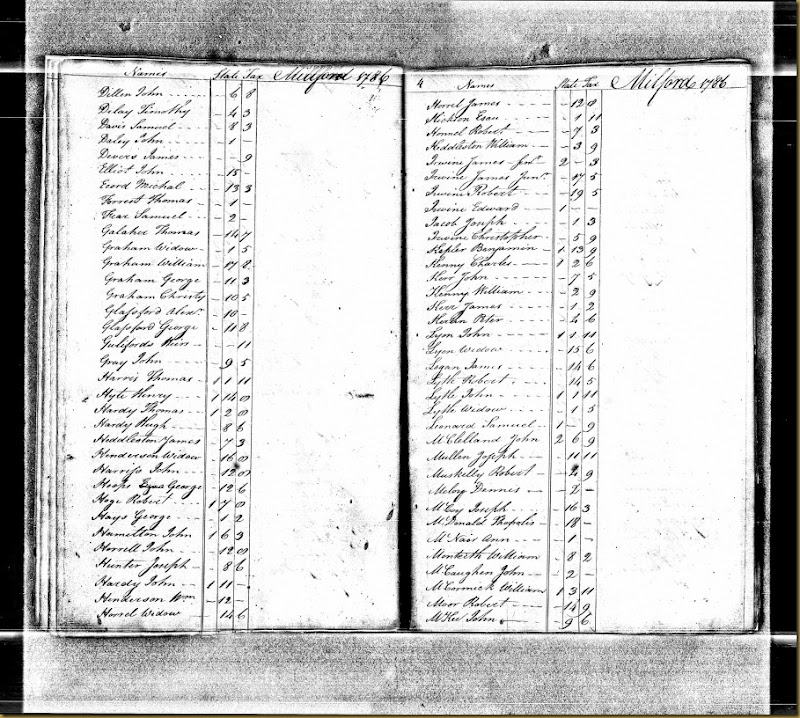 Names State Tax Milford 1786
Dillen John 6 8
Dilay Timothy 4 3
Davis Samuel 8 3
Daley John 1 -
Devers James - 9
Elliot John 15
Michal 13 3
Forrest Thomas 1 -
Frax Samuel 2 -
Galaher Thomas 14 7
Graham Widow 1 5
Graham William 17 8
Graham George 11 3
Graham Christy 10 5
Glassford Alexr 10 -
Glassford George 11 8
Guilfords - 11
Gray John 9 5
Harris Thomas 1 11 11
Hyte Henry 1 14 0
Hardy Thomas 1 2 0
Hardy Hugh 8 6
Heddleston James - 7 3
Henderson Widow - 16 0
Harriss John 12 0
Hoops George - 12 6
Hoge Robert 1 7 0
Hays George - 1 2
Hamelton John 1 6 3
Horrell John - 12 0
Hunter Joseph - 8 6
Hardy John 1 11 -
Henderson Wm - 12 -
Horrel Widow 14 6
4 Names State Tax Milford 1786
Horrel James - 12 0
Hickson Esau - 1 11
Hommel Robert - 7 3
Heddleston William - 3 9
Irwine James Senr 2 - 3
Irwine James Junr - 17 5
Irwine Robert - 19 5
Irwine Edward 1 -
Jacob Joseph 1 3
Irwine Christopher - 5 9
Kepler Benjamin 1 13 9
Kenny Charles 1 2 6
Kerr John - 7 5
Kenny William - 2 9
Kerr James - 1 2
Keran Peter - 4 6
Lyon John 1 1 11
Lyon Widow - 15 6
Logan James - 14 6
Lytle Robert 14 5
Lytle John 1 1 11
Lytle Widow 1 5
Leonard Samuel 1 - 9
McClelland John 2 6 9
Mullen Joseph - 11 11
Muskelly Robert - 2 9
Meloy Dennes - 2 -
McCoy Joseph - 16 3
McDonald Thopolis - 18 -
McNair Ann - 1 -
Monteith William - 8 2
McCaughen John - 2 -
McCormick William 1 3 11
Moor Robert - 14 9
McKee John - 9 6